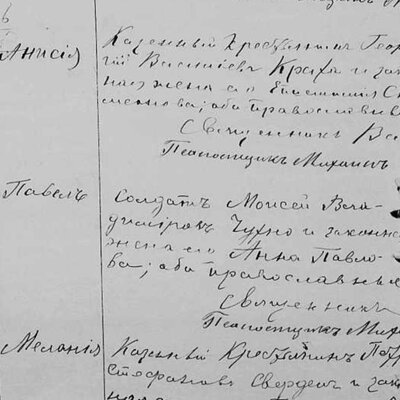 Анисія
Казенный Крестьянин Геор-
гій Василіев Краха и зак
ная жена его Епистимія Си
меонова; оба православн
Священник Ва
Псаломщикъ Михаилъ
Павелъ
Солдатъ Моисей Вла-
диміровъ Чухно и законна
жена его Анна Павло-
ва; оба православные
Священникъ
Псаломщикъ Миха
Меланія
Казенный Крестьянинъ Пет
Стефановъ Свердел и зак